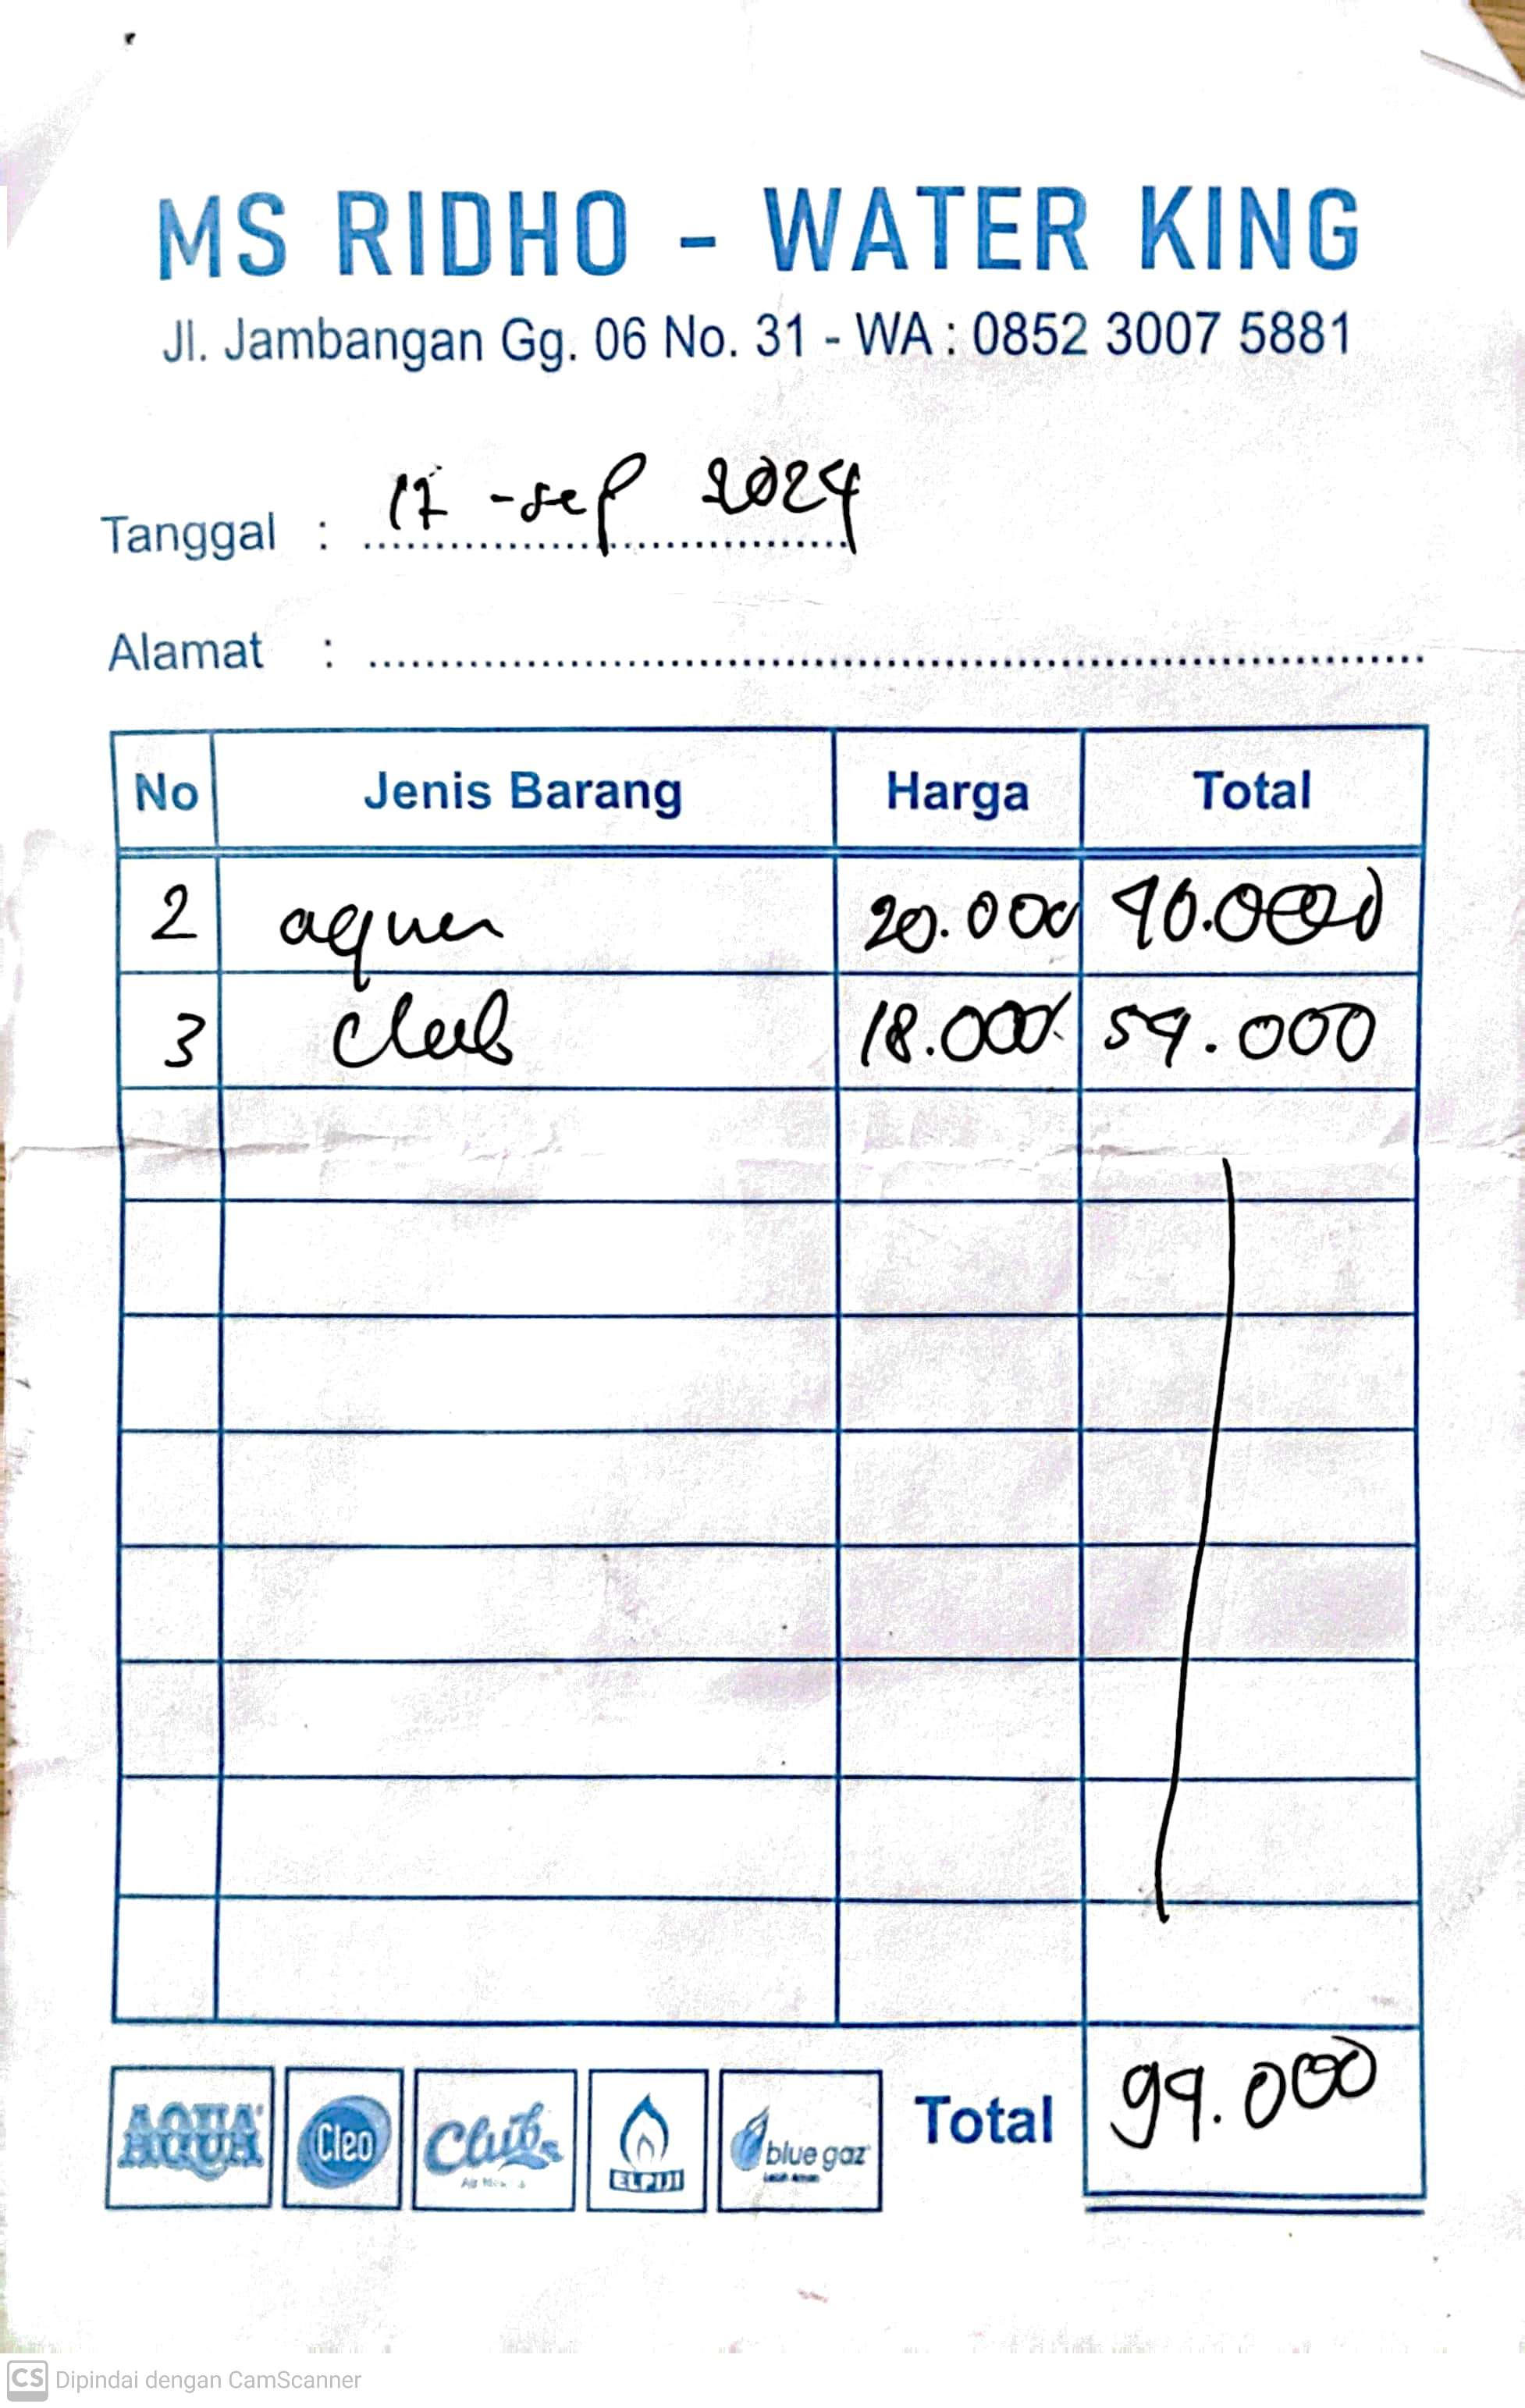 MS RIDHO - WATER KING
Jl. Jambangan Gg. 06 No. 31 - WA : 0852 3007 5881
Tanggal : 17 - sep 2024
Alamat :
No Jenis Barang Harga Total
2 aqua 20.000 40.000
3 club 18.000 54.000
AQUA Cleo Club ELPIJI blue gaz Total 94.000
CS Dipindai dengan CamScanner